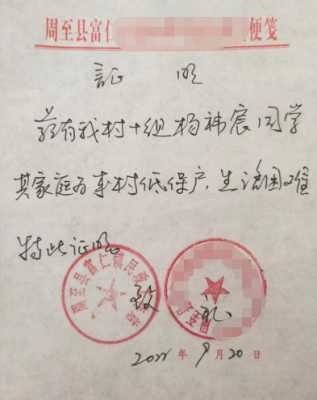 周至县富仁 便笺
证 明
兹有我村十组杨祎宸同学
其家庭为本村低保户,生活困难
特此证明
致
礼
周至县富仁镇民政
2022年9月20日